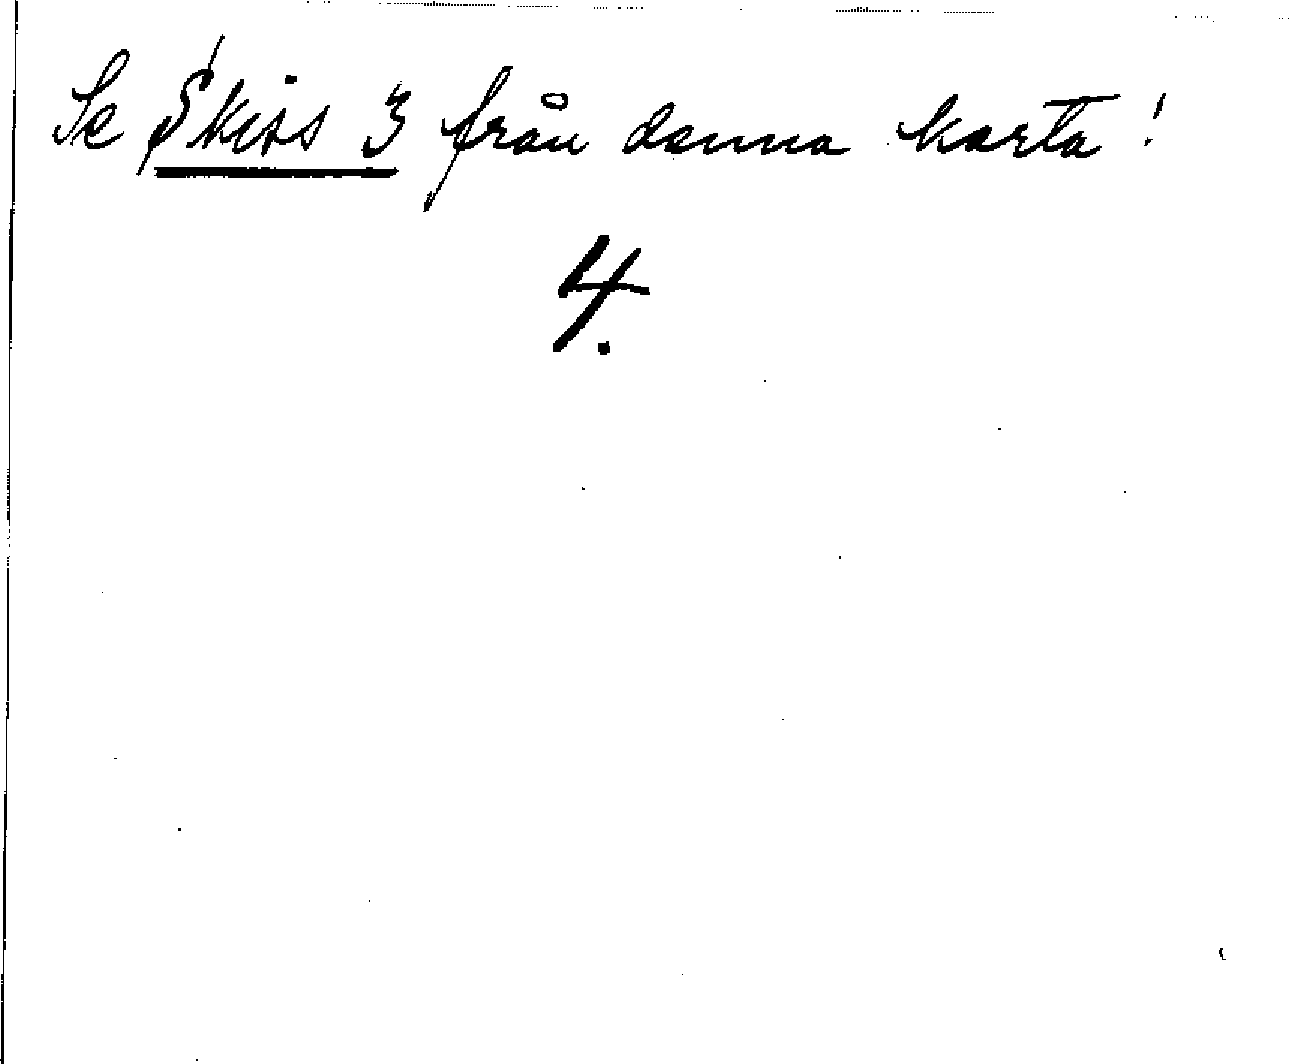 Se Skiss 3 från denna karta!
4.